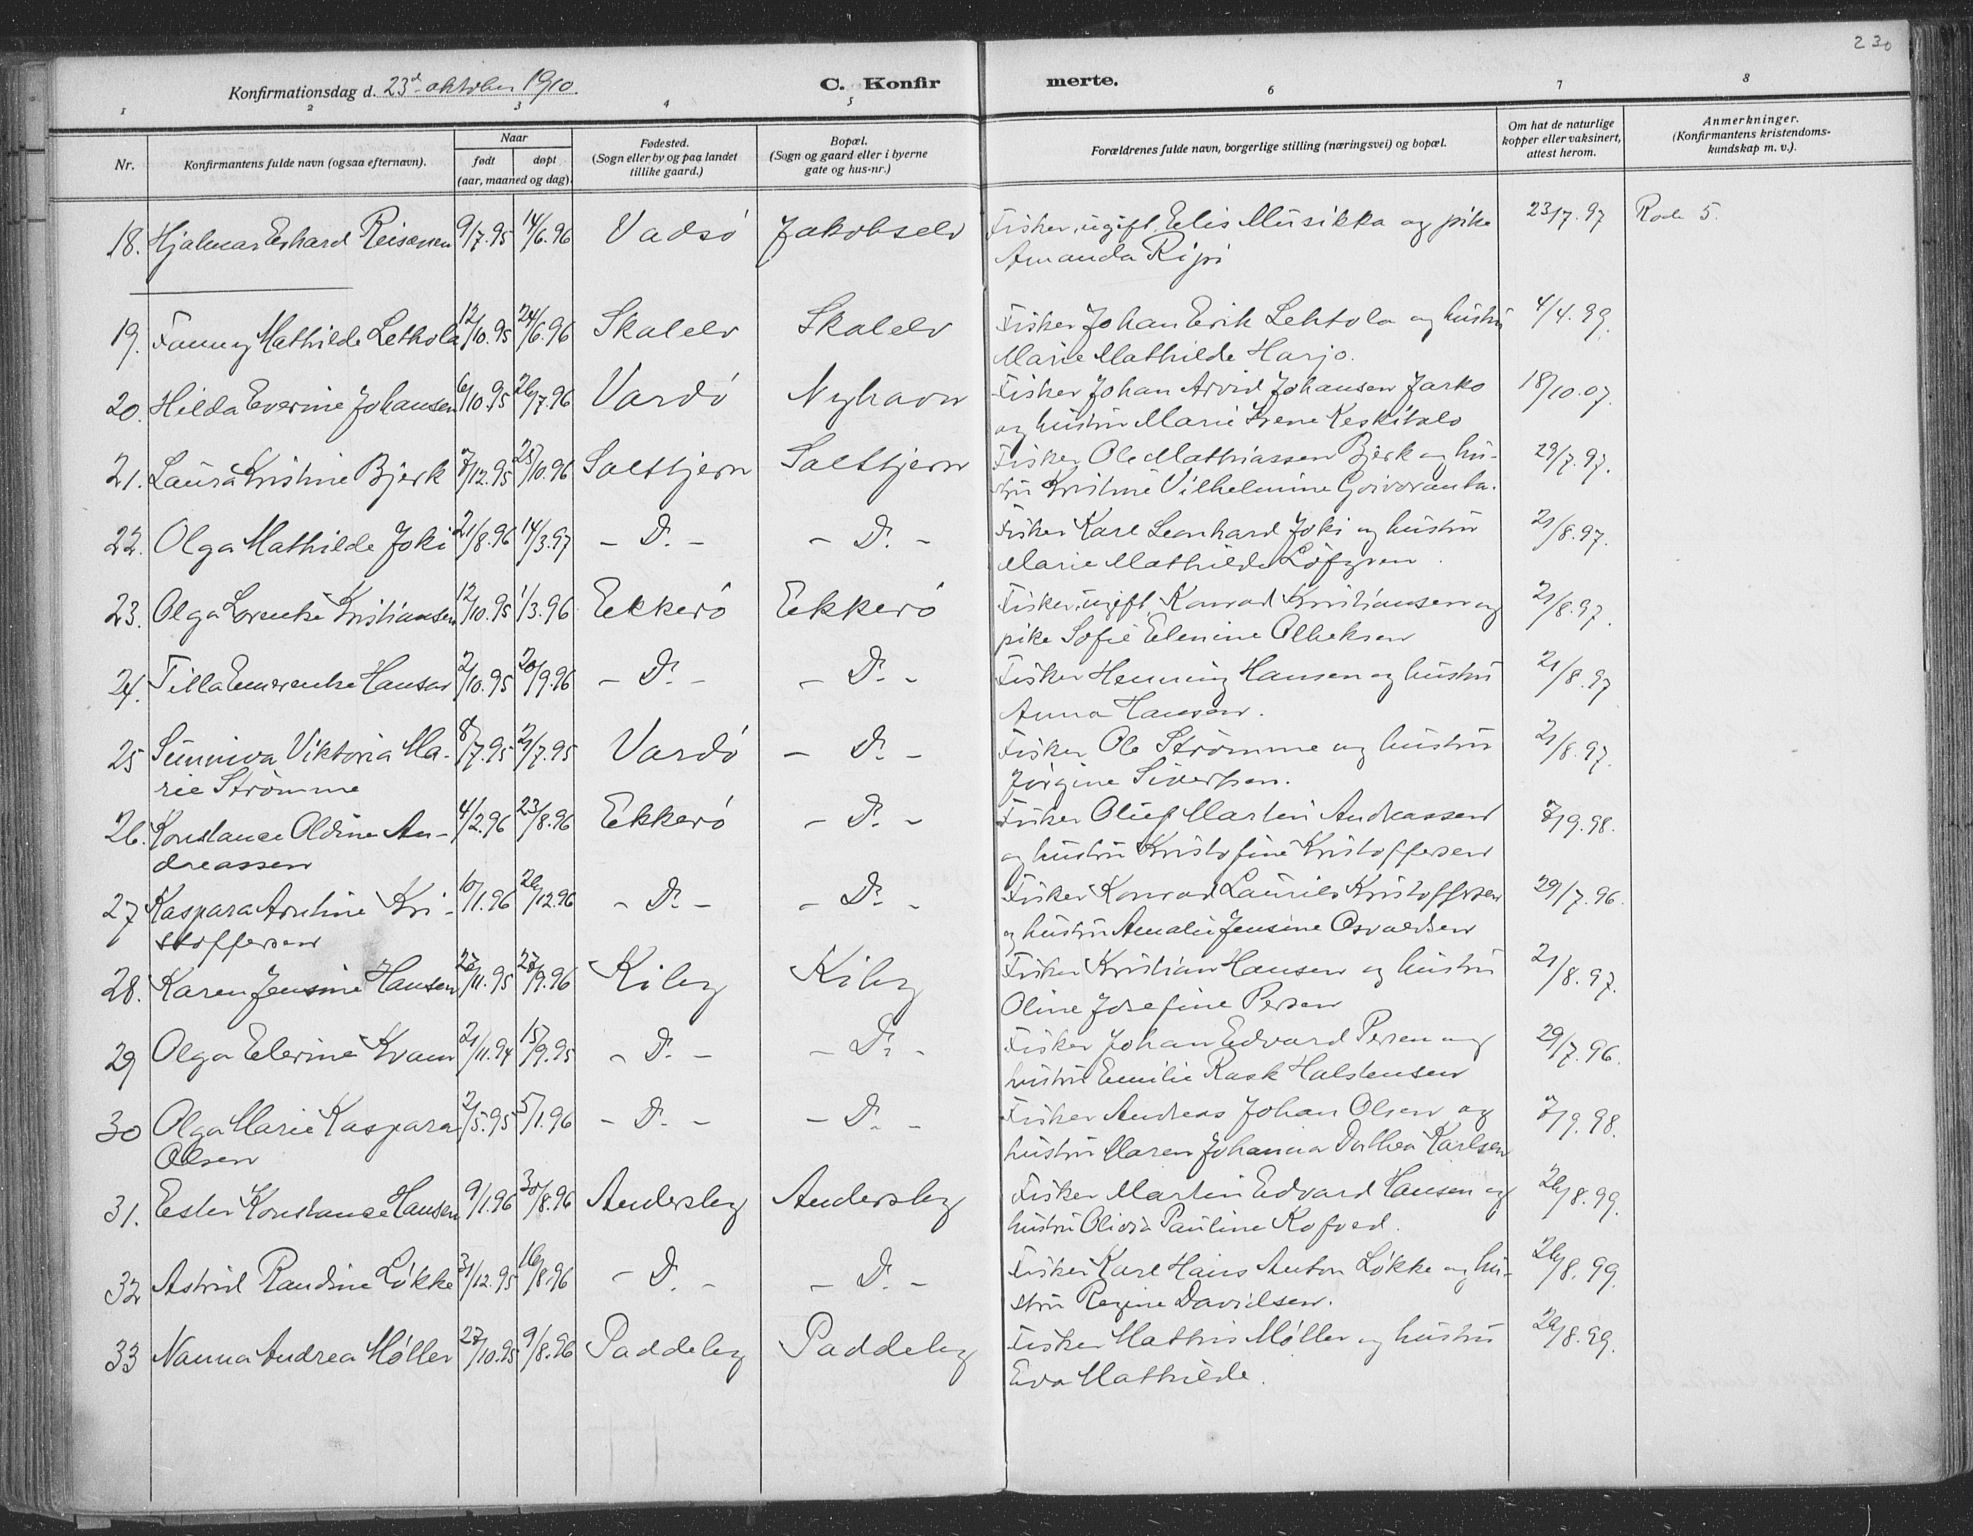 230
Konfirmationsdag d. 23d oktober 1910.
C. Konfirmerte.
1 2 3 4 5 6 7 8
Nr.
Konfirmantens fulde navn (ogsaa efternavn).
Naar
født døpt
(aar, maaned og dag).
Fødested.
(Sogn eller by og paa landet
tillike gaard.)
Bopæl.
(Sogn og gaard eller i byerne
gate og hus-nr.)
Forældrenes fulde navn, borgerlige stilling (næringsvei) og bopæl.
Om hat de naturlige
kopper eller vaksinert,
attest herom.
Anmerkninger.
(Konfirmantens kristendoms-
kundskap m. v.).
18. Hjalmar Erhard Reisænen 9/7.95 14/6.96 Vadsö Jakobselv Fisker, ugift, Elis Musikka og pike 23/7.97
Amanda Ripi
19. Fanny Mathilde Lethola 12/10.95 24/6.96 Skalelv Skalelv Fisker Johan Erik Lehtola og hustru 4/4.99.
Marie Mathilde Harjo.
20. Hilda Everine Johansen 6/10.95 26/7.96 Vardö Nyhavn Fisker Johan Arvid Johansen Jarko 18/10.07.
og hustru Marie Irene Keskitalo
21. Laura Kristine Bjerk 7/12.95 25/10.96 Saltbjern Saltbjern Fisker Ole Mathiassen Bjerk og hu- 29/7.97.
stru Kristine Vilhelmine Goivoranta.
22. Olga Mathilde Joki 21/8.96 14/3.97 - D. - - D. - Fisker Karl Leonhard Joki og hustru 21/8.97.
Marie Mathilde Löfgren.
23. Olga Lorentse Kristiansen 12/10.95 1/3.96 Ekkerö Ekkerö Fisker, ugift, Konrad Kristiansen og 21/8.97.
pike Sofie Elenine Olheksen
24. Tilla Emerentse Hansen 2/10.95 20/9.96 - D. - - D. - Fisker Henning Hansen og hustru 21/8.97
Anna Hansen.
25 Sunniva Viktoria Ma- 8/7.95 21/7.95 Vardö - D. - Fisker Ole Strömme og hustru 21/8.97.
rie Strömme Jörgine Sivertsen.
26. Konstance Oldine An- 4/2.96 23/8.96 Ekkerö - D. - Fisker Oluf Martin Andreassen 7/9.98.
dreassen og hustru Kristofine Kristoffersen
27 Kaspara Arntine Kri- 10/1.96 26/12.96 - D. - - D. - Fisker Konrad Laurits Kristoffersen 29/7.96.
stoffersen og hustru Amalie Jensine Osvaldsen
28. Karen Jensine Hansen 22/11.95 27/9.96 Kiby Kiby Fisker Kristian Hansen og hustru 21/8.97.
Oline Josefine Persen
29 Olga Elerine Kvam 21/11.94 15/9.95 - D. - - D. - Fisker Johan Edvard Persen og 29/7.96.
hustru Emilie Rask Halstensen
30 Olga Marie Kaspara 2/5.95 5/1.96 - D. - - D. - Fisker Andreas Johan Olsen og 7/9.98.
Olsen hustru Maren Johanna Dorthea Karlsen
31. Ester Konstance Hansen 9/1.96 30/8.96 Andersby Andersby Fisker Martin Edvard Hansen og 26/8.99.
hustru Olivia Pauline Kofoed.
32 Astrid Randine Løkke 31/12.95 16/8.96 - D. - - D. - Fisker Karl Hans Anton Løkke og hu- 26/8.99.
stru Regine Davidsen.
33 Nanna Andrea Møller 27/10.95 9/8.96 Paddeby Paddeby Fisker Mathis Møller og hustru 26/8.99.
Eva Mathilde.